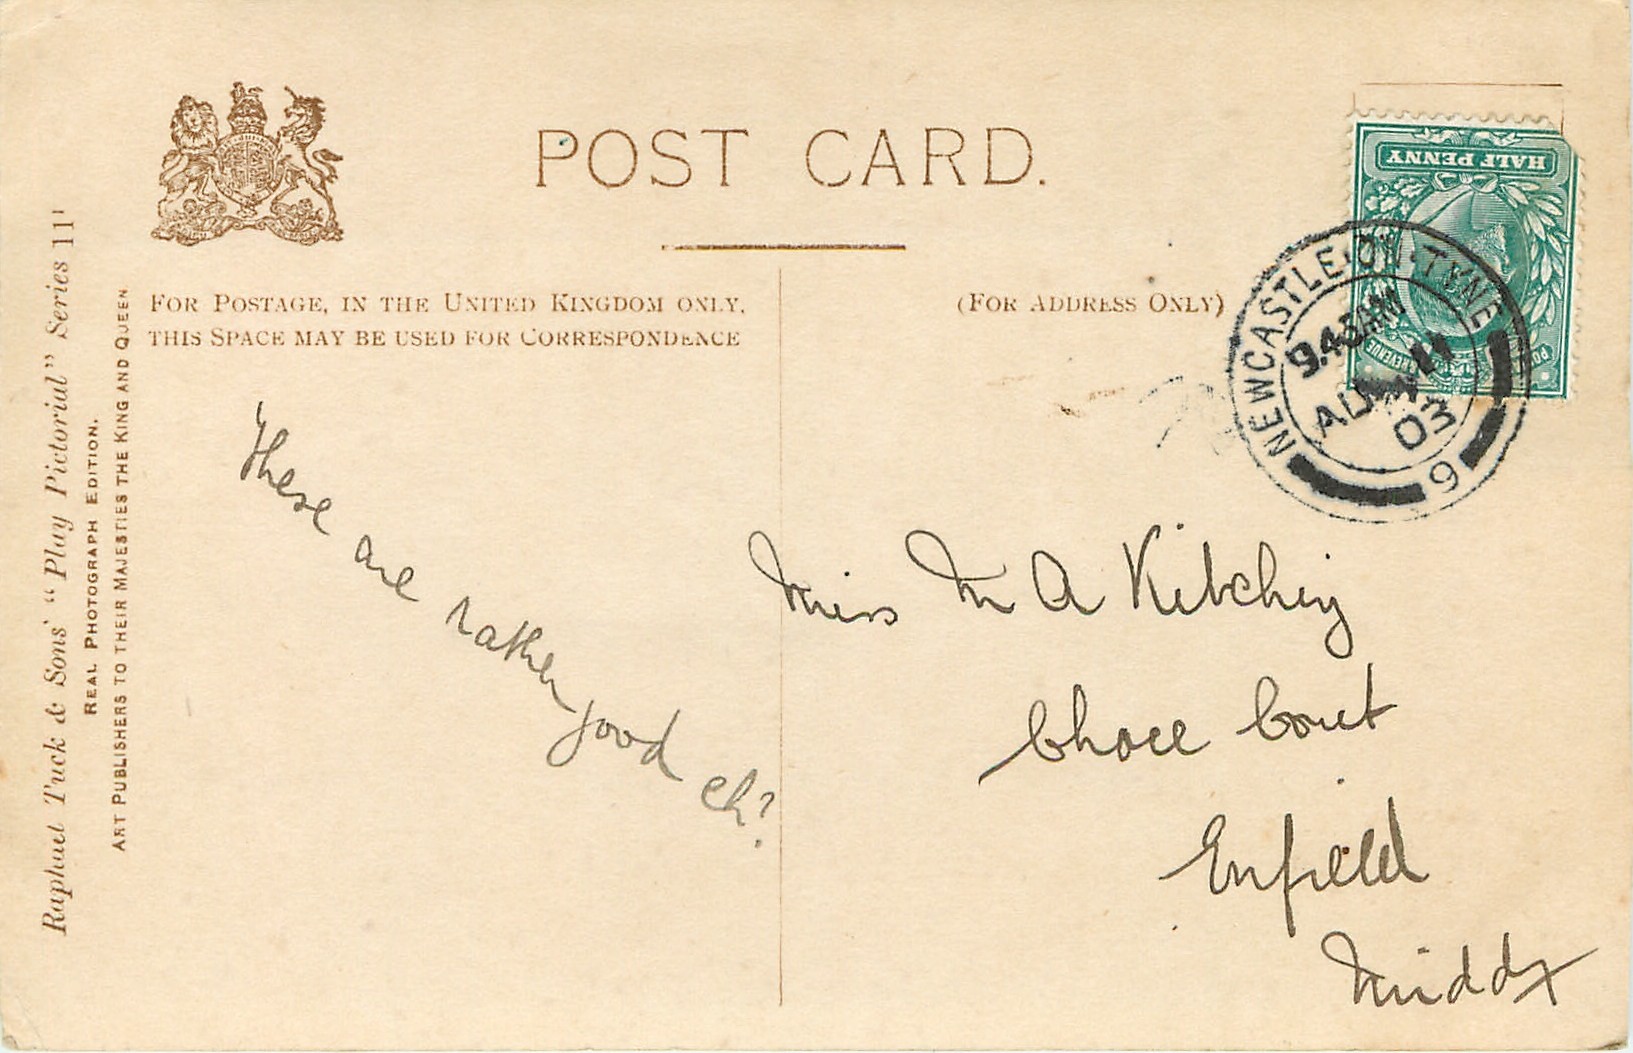 POST CARD.
FOR POSTAGE, IN THE UNITED KINGDOM ONLY,
THIS SPACE MAY BE USED FOR CORRESPONDENCE
(FOR ADDRESS ONLY)
Raphael Tuck & Sons' "Play Pictorial" Series 11
REAL PHOTOGRAPH EDITION.
ART PUBLISHERS TO THEIR MAJESTIES THE KING AND QUEEN
HALF PENNY
NEWCASTLE-ON-TYNE
9.45AM
AU 11
03
9
These are rather good eh?
Miss M A Kitching
Chace Court
Enfield
Middx